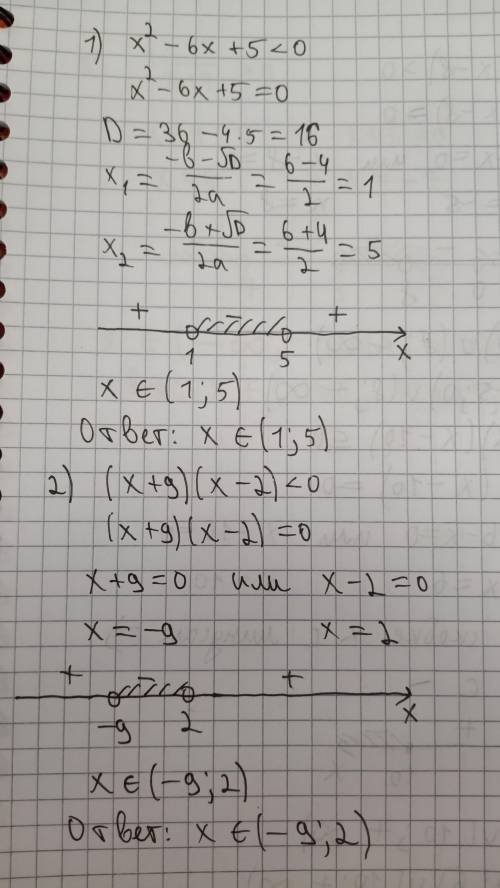 1) x² - 6x + 5 < 0
x² - 6x + 5 = 0
D = 36 - 4·5 = 16
x₁ = (-b - √D)/(2a) = (6 - 4)/2 = 1
x₂ = (-b + √D)/(2a) = (6 + 4)/2 = 5
+ - +
1 5 x
x ∈ (1; 5)
Ответ: x ∈ (1; 5)
2) (x + 9)(x - 2) < 0
(x + 9)(x - 2) = 0
x + 9 = 0 или x - 2 = 0
x = -9 x = 2
+ - +
-9 2 x
x ∈ (-9; 2)
Ответ: x ∈ (-9; 2)